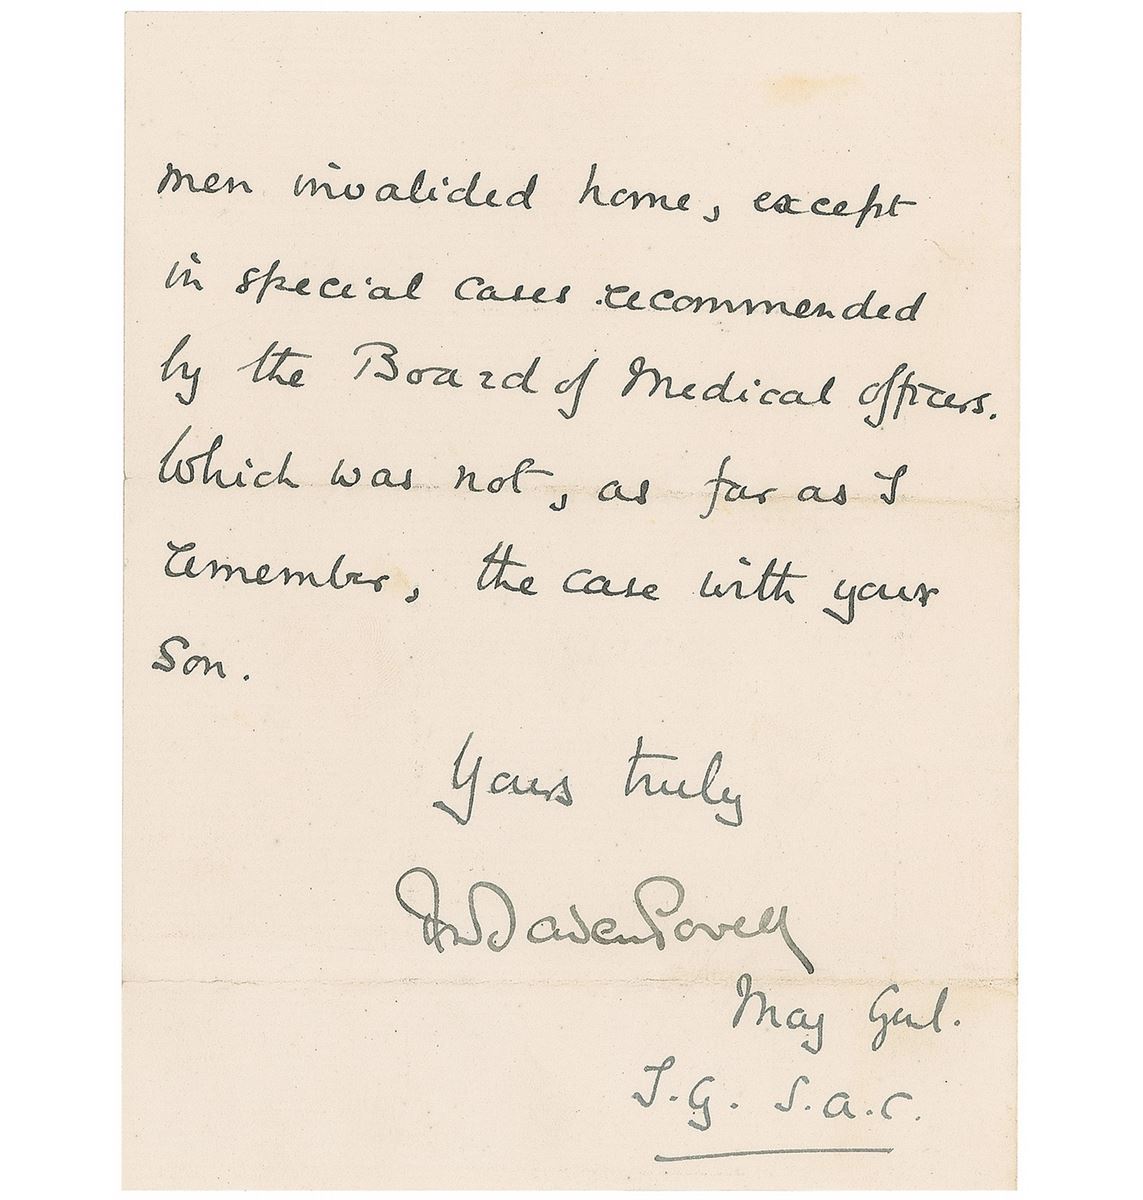 men invalided home, except
in special cases recommended
by the Board of Medical officers.
Which was not, as far as I
remember, the case with your
Son.
Yours truly
R.S.S. Baden Powell
Maj Genl.
I.G. S.A.C.